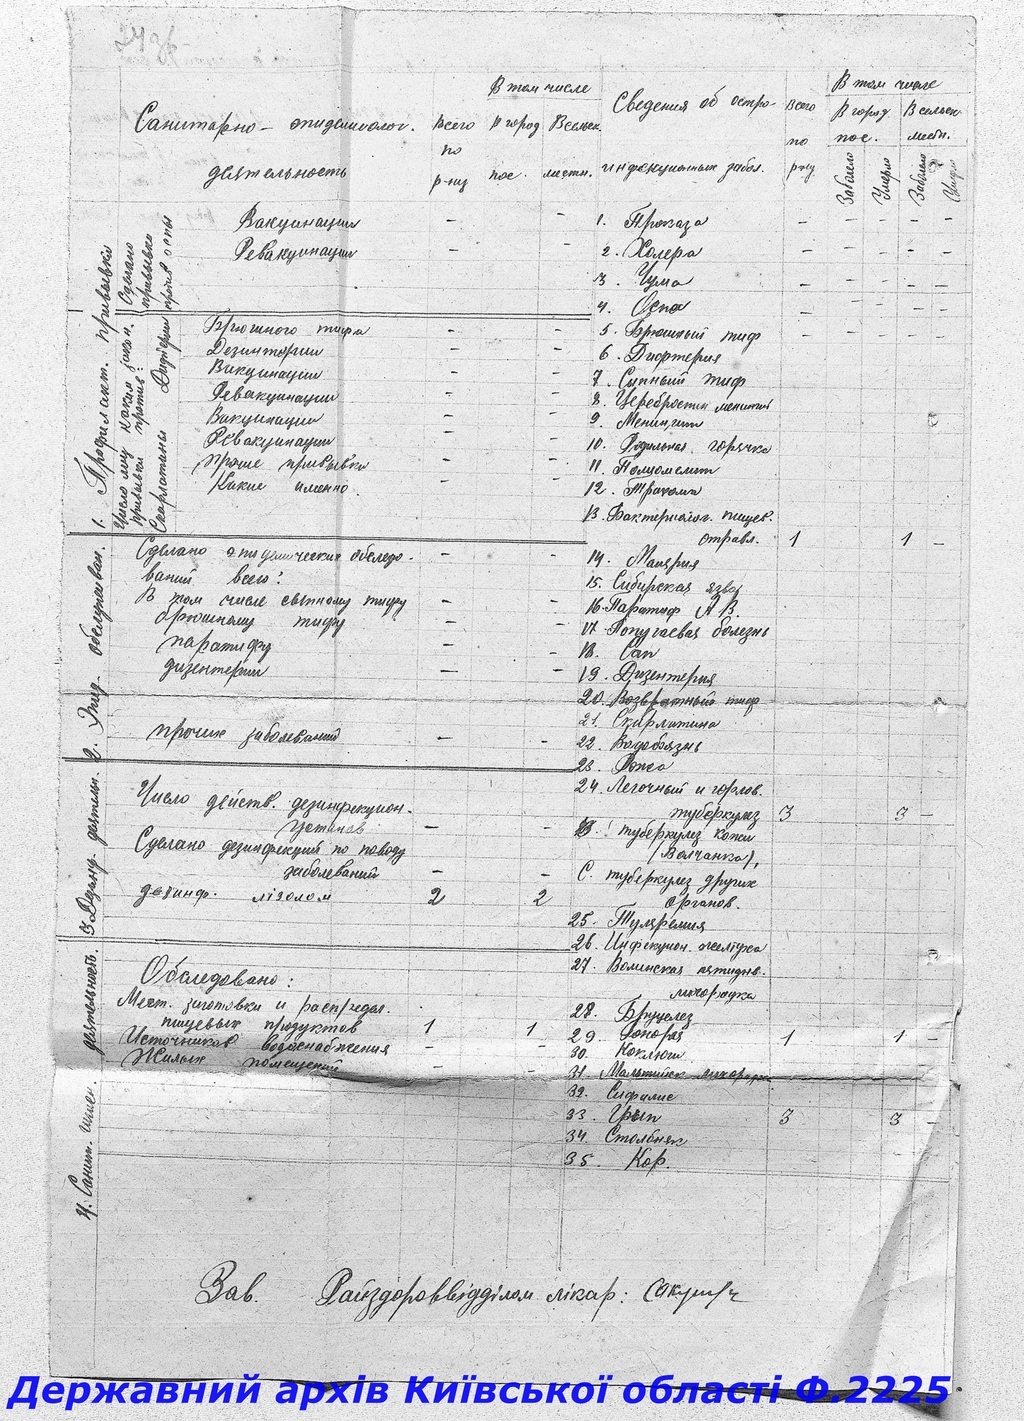 Санитарно-эпидемиолог. деятельность
Всего по р-ну
В том числе
В город. пос.
В сельск. местн.
Сведения об остро-инфекционных забол.
Всего по р-ну
В том числе
В город пос.
В сельск местн.
Заболело
Умерло
Заболело
Умерло
1. Профилакт. прививки
Сделано прививок против оспы
Вакцинации - -
Ревакцинации - -
Число лиц каким закон. прививки против:
Скарлатины Дифтерии
Брюшного тифа - -
Дезинтерии - -
Вакцинации - -
Ревакцинации - -
Вакцинации - -
Ревакцинации - -
Проше прививки - -
Какие именно. - -
2. Эпид. обслуживан.
Сделано эпидемических обследо- - -
ваний всего: - -
В том числе сыпному тифу - -
брюшному тифу - -
паратифу - -
дизентерии - -
прочих заболеваний - -
3. Дезинф. деятельн.
Число действ. дезинфекцион.
Установ - -
Сделано дезинфекций по поводу
заболеваний - -
дезинф. лізолом 2 2
4. Санит. деятельность.
Обследовано:
Мест. заготовки и распредел.
пищевых продуктов 1 1
Источников водоснабжения - -
Жилых помещений - -
1. Проказа - - - - -
2. Холера - - - - -
3. Чума - - - - -
4. Оспа - - - - -
5. Брюшный тиф - - - - -
6. Дифтерия
7. Сыпный тиф
8. Цереброспин менингит
9. Менингит
10. Родильная горячка
11. Полиомелит
12. Трахома
13. Бактериолог. пищев.
отравл. 1 1 -
14. Малярия
15. Сибирская язва
16. Паратиф А В.
17. Попугаевая болезнь
18. Сап
19. Дизентерия
20. Возвратный тиф
21. Скарлатина
22. Водобоязнь
23. Рожа
24. Легочный и горлов.
туберкулез 3 3 -
В. туберкулез кожи
(Волчанка),
С. туберкулез других
органов.
25. Туляремия
26. Инфекцион. желтуха
27. Волинская пятиднв.
лихорадка
28. Бруцелез
29. Гонорея 1 1 -
30. Коклюш
31. Мальтийск лихорадк
32. Сифилис
33. Грып 3 3 -
34. Столбняк
35. Кор.
Зав. Райздороввідділом лікар:
Державний архів Київської області Ф.2225